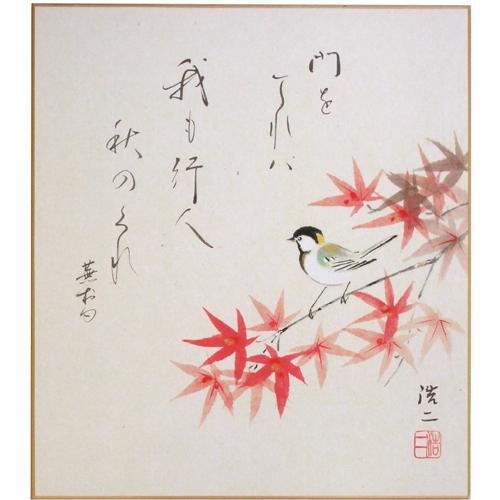 門を
出れハ
我も行人
秋のくれ
蕪村句
浩二
浩二